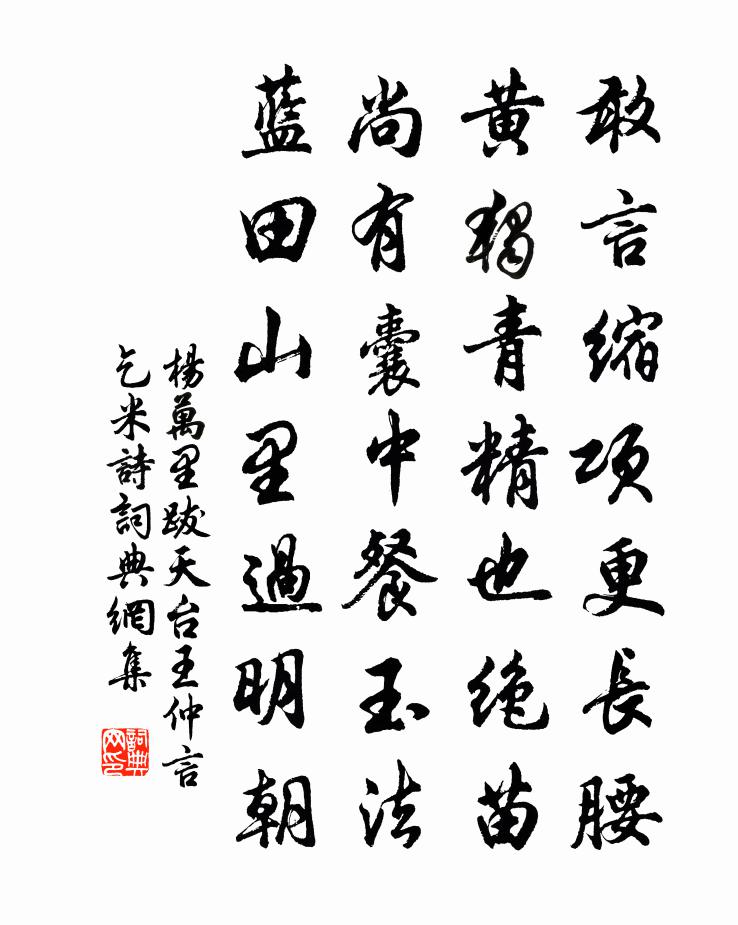 敢言縮項更長腰
黄獨青精也絶苗
尚有囊中餐玉法
藍田山里過明朝
楊萬里跋天台王仲言
乞米詩詞典網集
詞典
网印